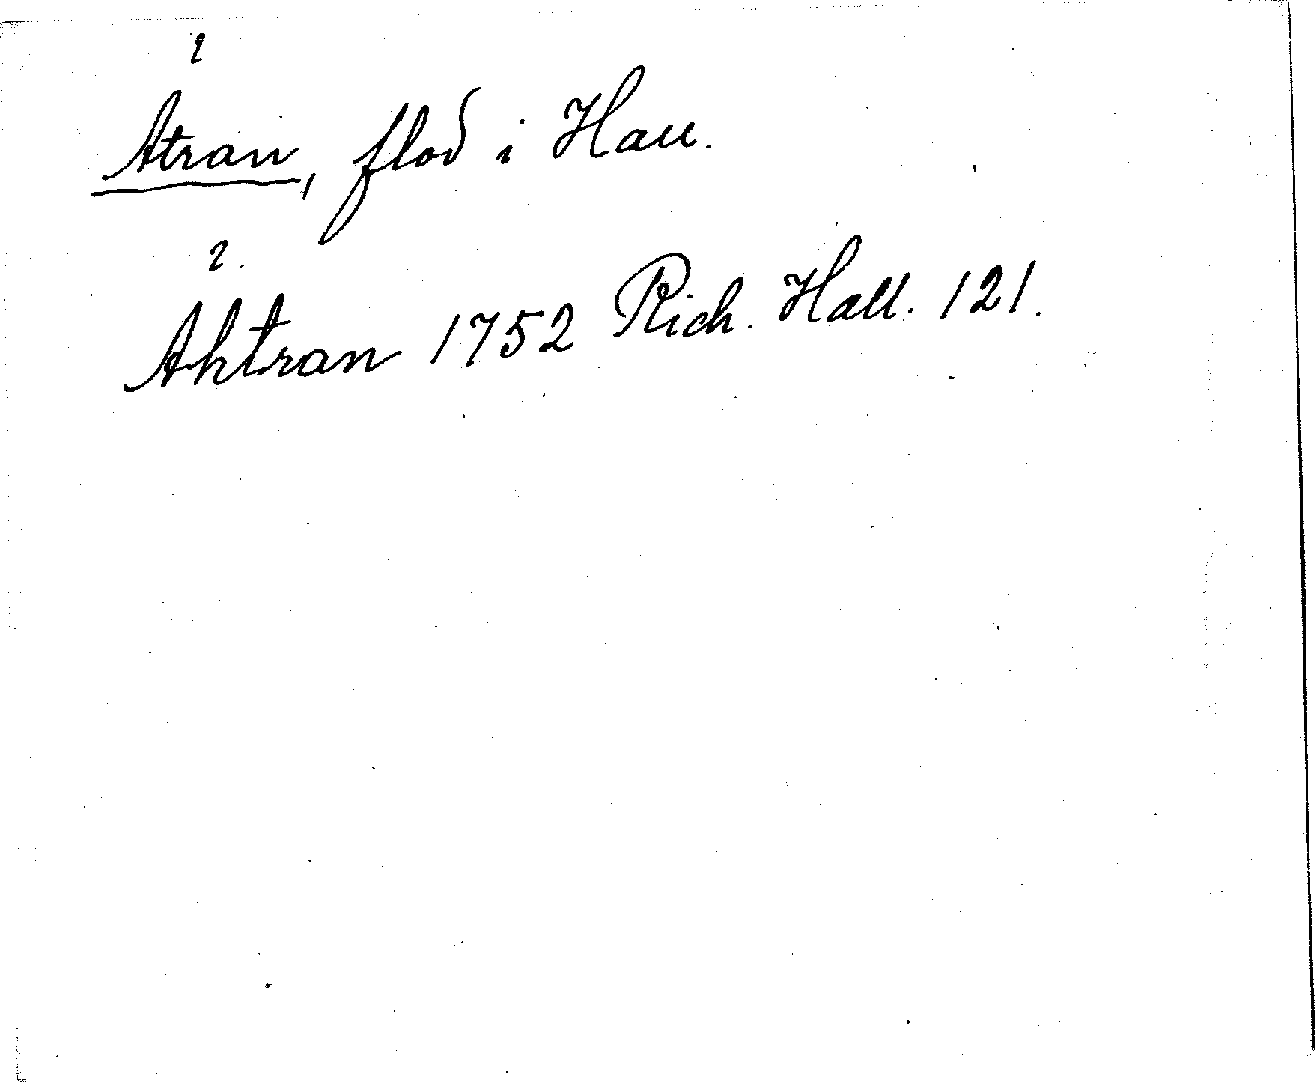 Åtran, flod i Hall.
Åhtran 1752 Rich. Hall. 121.